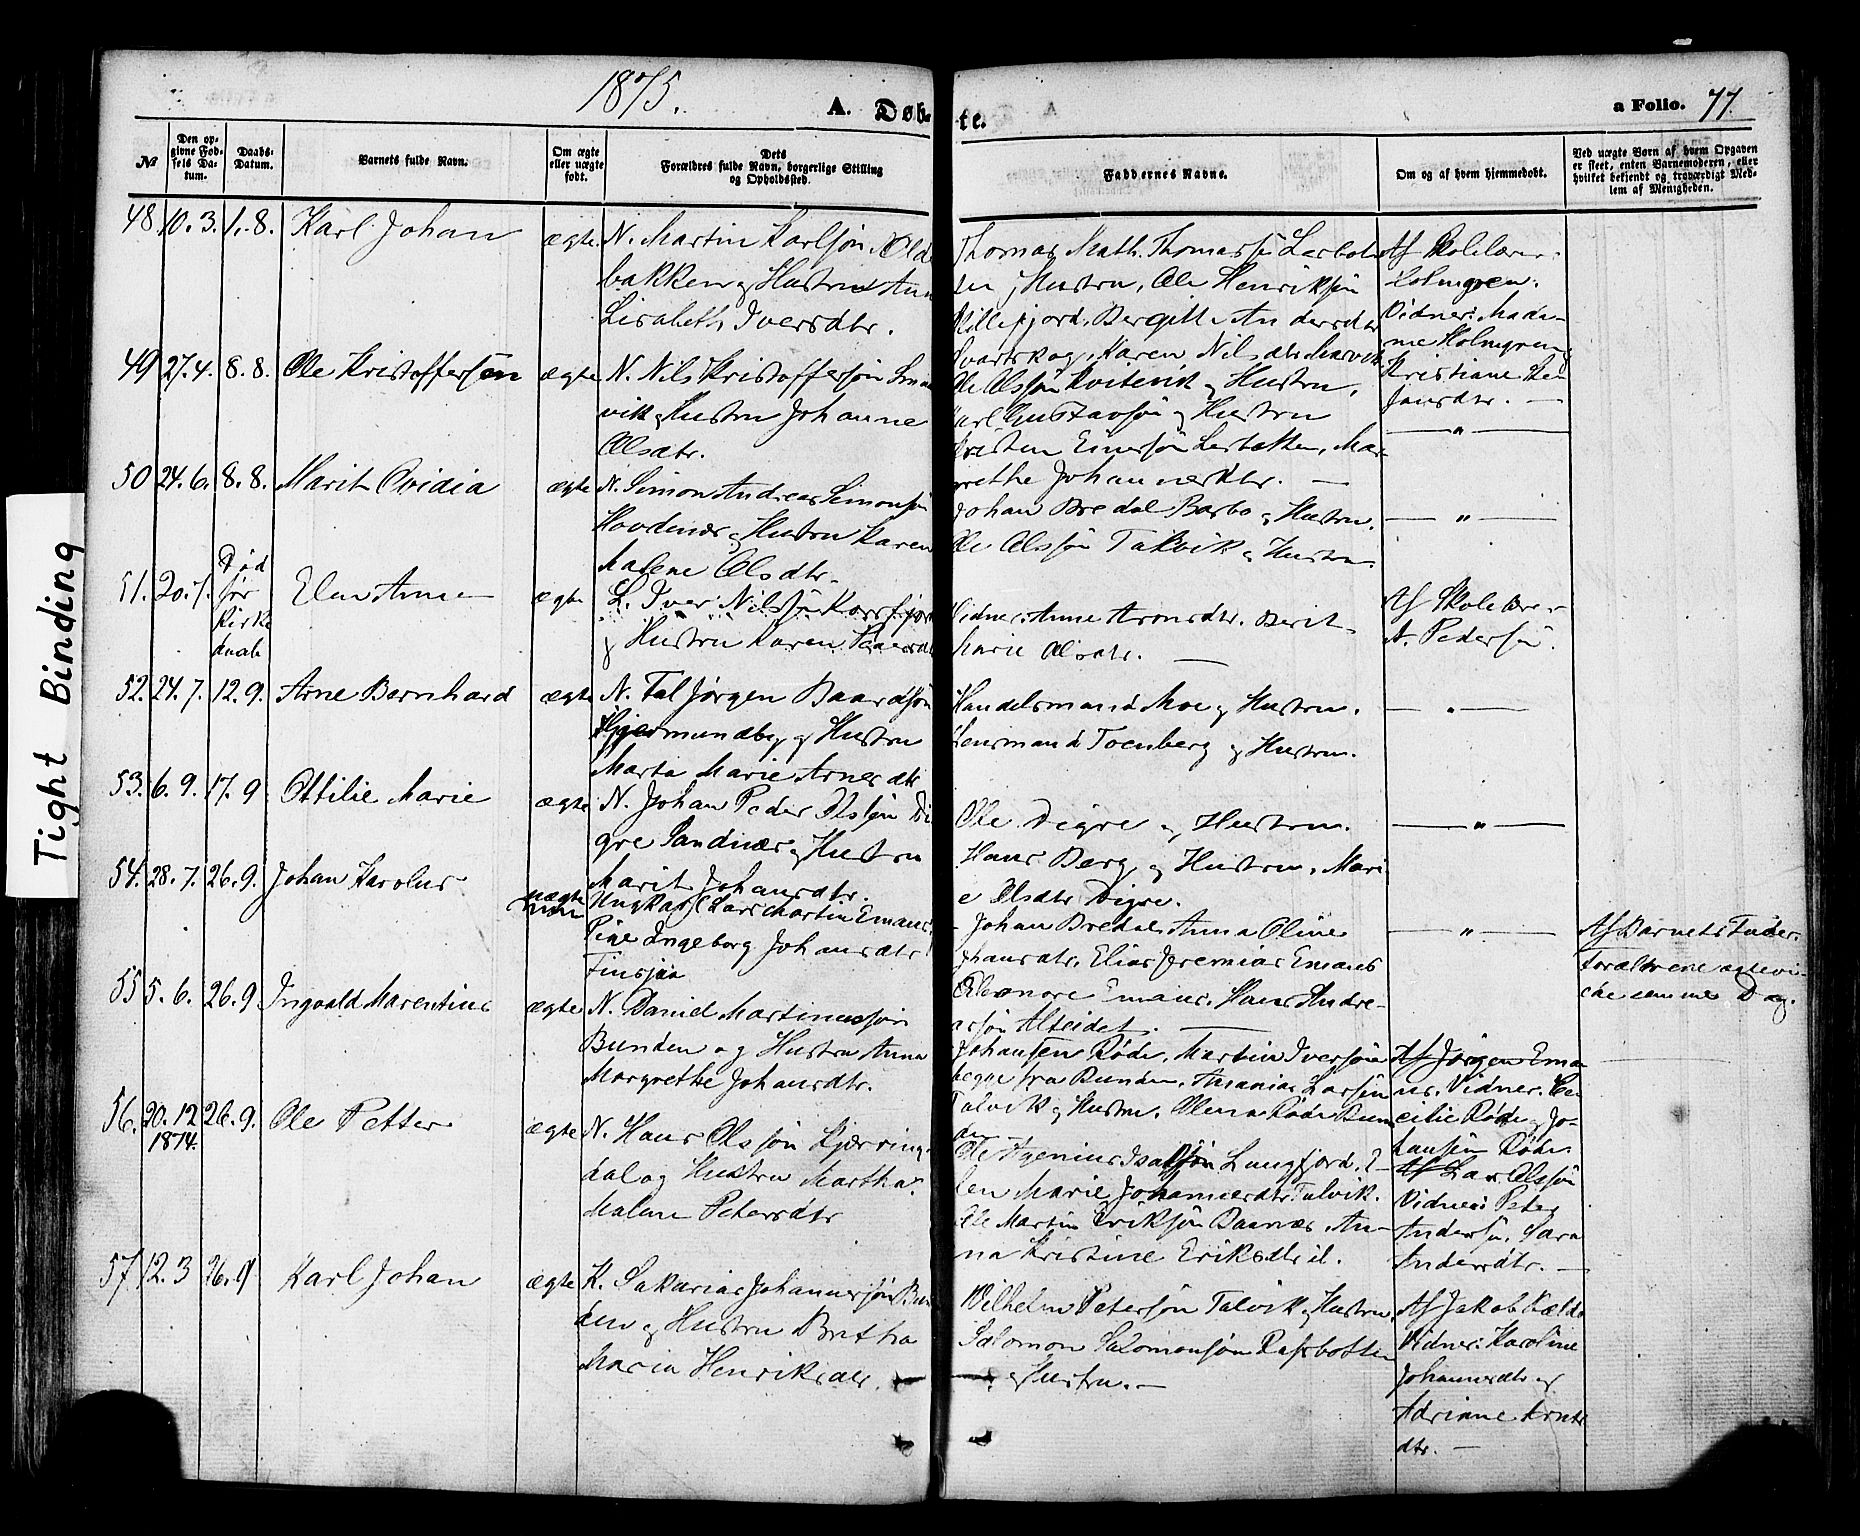 1875.
A. Døb-
te.
a Folio. 77.
Tight Binding
№
Den op-
givne Fød-
sels Da-
tum.
Daabs-
Datum.
Barnets fulde Navn.
Om ægte
eller uægte
født.
Dets
Forældres fulde Navn, borgerlige Stilling
og Opholdssted.
Faddernes Navne.
Om og af hvem hjemmedøbt.
Ved uægte Børn af hvem Opgaven
er skeet, enten Barnemoderen, eller
hvilket bekjendt og troværdigt Med-
lem af Menigheden.
48 10. 3. 1. 8. Karl Johan ægte
N. Martin Karlsøn Old
bakken og Hustru Ann
Lisabeth Iversdtr.
Thomas Math. Thomassøn Lerbots
ten, Hustru, Ole Henriksøn
Killefjord, Bergitte Andersdtr
Svartskog, Karen Nilsdtr
Af Skolelærer
Holmgren.
Vidner: Mada-
me Holmgren og
Kristiane
Jansdtr. —
49 27. 4. 8. 8. Ole Kristoffersen ægte
N. Nils Kristoffersøn
vik og Hustru Johanne
Olsdtr.
Ole Olssøn Kvitevik og Hustru,
Karl Gustavsøn og Hustru
Kristen Einersøn Lerbotten, Mar-
grethe Johannesdtr. —
— " —
50 24. 6. 8. 8. Marit Ovidia ægte
N. Simon Andreas Simonsøn
Hovdenær og Hustru Karen
Malene Olsdtr.
Johan Bredal Barbo og Hustru.
Ole Olssøn Talvik og Hustru
— " —
51. 20. 7. Død
før
Kirke
daab
Elen Anne ægte
L. Iver Nilssøn Korsfjord
og Hustru Karen Pedersdtr
Vidner. Anne Aronsdtr. Berit
Marie Olsdtr. —
Af Skolelærer
A. Pedersøn.
52. 24. 7. 12. 9. Arne Bernhard ægte
N. Tal Jørgen Baardsøn
Hjermundby og Hustru
Marta Marie Arnesdtr
Handelsmand Moe og Hustru.
Lensmand Toenberg og Hustru.
— " —
53. 6. 9. 17. 9 Ottilie Marie ægte
N. Johan Peder Olssøn Di
gre Sandnær og Hustru
Marit Johansdtr.
Ole Digre og Hustru.
Hans Berg og Hustru, Mari
e Olsdtr Digre.
— " —
54. 28. 7. 26. 9. Johan Karolus uægte
Ungkarl Lars Martin Emaus
Pige Ingeborg Johansdtr
Johan Bredal Anna Oline
Johansdtr. Elias Jeremias Emaus
Eleonore Emaus. Hans Andre-
assøn Alteidet. —
— " —
Af Barnets Fader.
Forældrene ægtevi-
ede samme Dag.
55 5. 6. 26. 9 Ingvald Marentius ægte
N. Daniel Martinussøn
Bunden og Hustru Anna
Margrethe Johansdtr.
Johansen Røde, Martin Iversøn
begge fra Bunden, Ananias Larsøn
Talvik og Hustru. Olena Røde Bun
den
Af Jørgen Ema
us. Vidner. Ce
cilie Røde og Jo-
hansen Røde
56. 20. 12 26. 9.
1874.
Ole Petter ægte
N. Hans Olssøn Kjærring-
dal og Hustru Martha
Malene Petersdtr
Ole Agenius Isaksøn Langfjord. E-
len Marie Johannesdtr Talvik.
Ole Martin Eriksøn Daarnæs An-
na Kristine Eriksdtr il.
Af Lars Olssøn
Vidner: Peter
Andersøn, Sara
Andersdtr. —
57 12. 3 26. 9 Karl Johan ægte
K. Sakarias Johannessøn Bun
den og Hustru Britha
Maria Henriksdtr. —
Vilhelm Petersøn Talvik og Hustru
Salomon Salomonsøn Rafsbotten
og Hustru. —
Af Jakob
Vidner: Karoline
Johannesdtr og
Adriane
dtr. —